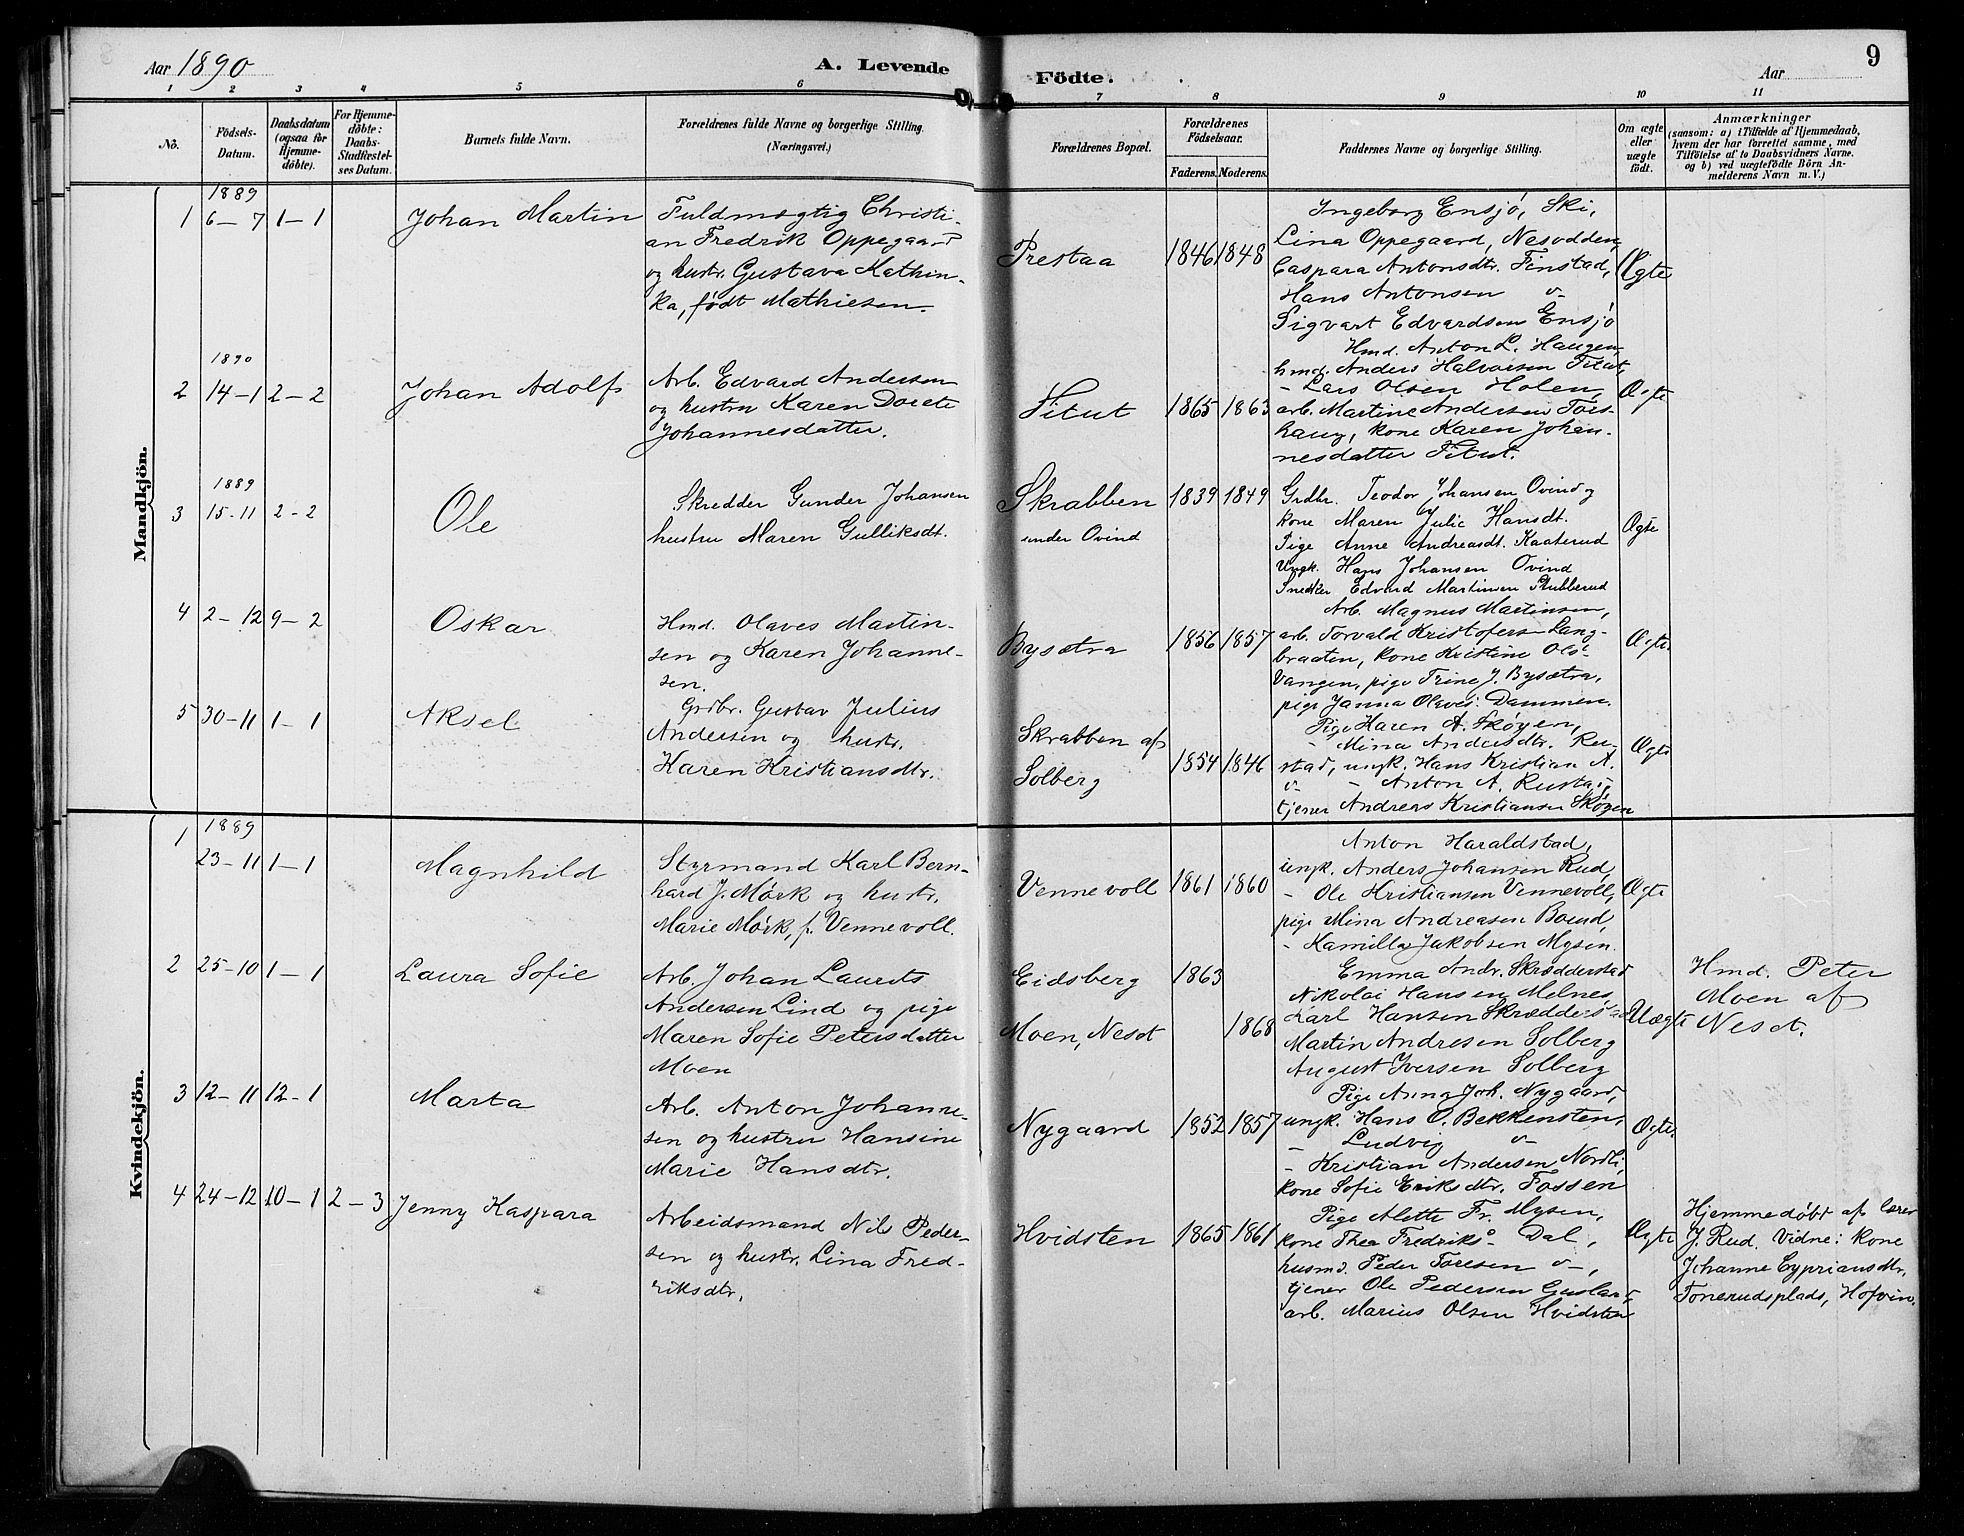 Aar 1890
A. Levende
Födte.
Aar
9
1 2 3 4 5 6 7 8 9 10 11
No.
Födsels-
Datum.
Daabsdatum
(ogsaa for
Hjemme-
döbte).
For Hjemme-
döbte:
Daabs-
Stadfæstel-
ses Datum.
Barnets fulde Navn.
Forældrenes fulde Navne og borgerlige Stilling.
(Næringsvei.)
Forældrenes Bopæl.
Forældrenes
Födselsaar.
Faderens. Moderens.
Faddernes Navne og borgerlige Stilling.
Om ægte
eller
uægte
födt.
Anmærkninger
(saasom: a) i Tilfælde af Hjemmedaab,
hvem der har forrettet samme, med
Tilföielse af to Daabsvidners Navne.
og b) ved uægtefödte Börn An-
melderens Navn m. V.)
Mandkjön.
1889
1 6-7 1-1 Johan Martin
Fuldmægtig Christi-
an Fredrik Oppegaard
og hustr. Gustava Kathin-
ka, født Mathiesen.
Prestaa 1846 1848
Ingeborg Ensjö, Ski,
Lina Oppegaard, Nesodden,
Caspara Antonsdtr. Finstad,
Hans Antonsen
Sigvart Edvardsen Ensjö
Ægte
1890
2 14-1 2-2 Johan Adolf
Arb. Edvard Andersen
og hustru Karen Dorete
Johannesdatter.
Fitut 1865 1863
Hmd. Anton L. Haugen,
hmd. Anders Halvorsen Fitut,
- Lars Olsen Holen,
arb. Martine Andersen Tors-
haug, kone Karen Johan-
nesdatter Fitut.
Ægte
1889
3 15-11 2-2 Ole
Skredder Gunder Johansen
hustru Maren Gulliksdt.
Skrabben
under Ovind
1839 1849
Grdbr. Teodor Johansen Ovind og
kone Maren Julie Hansdt.
Pige Anne Andreasdt. Kaaterud
Ungk. Hans Johansen Ovind
Snedker Edvard Martinsen Stubberud
Ægte
4 2-12 9-2 Oskar
Hmd. Olaves Martin-
sen og Karen Johanne-
sen.
Bysætra 1856 1857
Arb. Magnus Martinsen,
arb. Torvald Kristofers- Lang-
braaten, kone Kristine Ols-
Vangen, pige Trine J. Bysætra,
pige Janna Olaves- Dammen.
Ægte
5 30-11 1-1 Aksel
Grdbr. Gustav Julius
Andersen og hustr.
Karen Kristiansdtr.
Skrabben af
Solberg
1854 1846
Pige Karen A. Skøyen,
- Mina Andersdtr. Ru-
stad, ungk. Hans Kristian A.
- Anton A. Rustad,
tjener Andreas Kristiansen Skøyen
Ægte
Kvindekjön.
1889
1 23-11 1-1 Magnhild
Styrmand Karl Bern-
hard J. Mørk og hustr.
Marie Mørk, f. Vennevoll.
Vennevoll 1861 1860
Anton Haraldstad,
ungk. Anders Johansen Rud,
- Ole Kristiansen Vennevoll,
pige Mina Andreasen Boend,
- Kamilla Jakobsen Mysen.
Ægte
2 25-10 1-1 Laura Sofie
Arb. Johan Laurits
Andersen Lind og pige
Maren Sofie Petersdatter
Moen
Eidsberg 1863
Moen, Nesst 1868
Emma Andr. Skrædderstad
Nikolai Hansen Melnes
Karl Hansen Skrædderstad
Martin Andresen Solberg
August Iversen Solberg
Uægte
Hmd. Peter
Moen af
Nesst.
3 12-11 12-1 Marta
Arb. Anton Johanne-
sen og hustru Hansine
Marie Hansdtr.
Nygaard 1852 1857
Pige Anna Joh. Nygaard,
ungk. Hans O. Bekkensten,
- Ludvig
- Kristian Andersen Nordli,
kone Sofie Eriksdtr. Fossen
Ægte
4 24-12 10-1 2-3 Jenny Kaspara
Arbeidsmand Nils Peder-
sen og hustr. Lina Fred-
riksdtr.
Hvidsten 1865 1861
Pige Alette Fr. Mysen,
kone Thea Fredriks- Dal,
husmd. Peder Toresen
tjener Ole Pedersen Guslund,
arb. Marius Olsen Hvidsten
Ægte
Hjemmedøbt af lærer
J. Rud. Vidne: kone
Johanne Cypriansdtr.
Tonerudsplads, Hofvin.